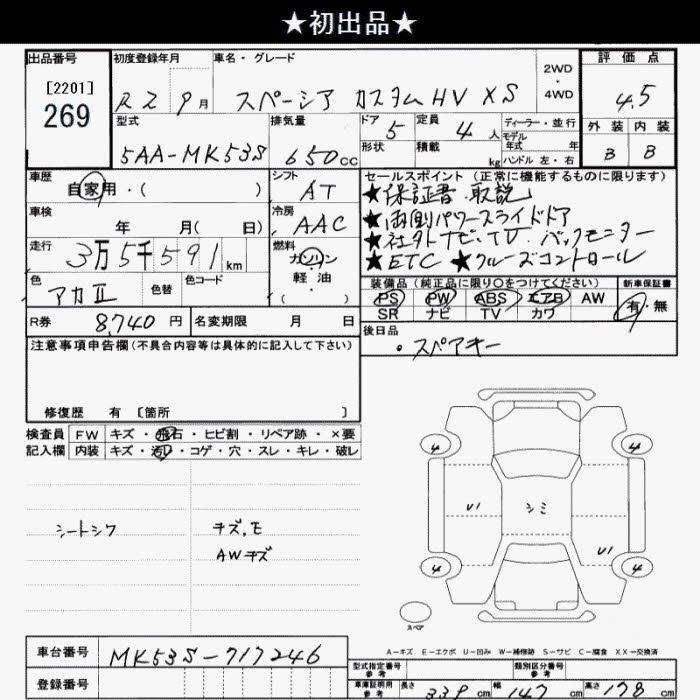 ★初出品★
出品番号
[2201]
269
初度登録年月
R2 9月
車名・グレード
スペーシア カスタムHV XS
2WD
・
4WD
評価点
4.5
外装 内装
B B
型式
5AA-MK53S
排気量
650cc
ドア
5
定員
4人
形状
積載
kg
ディーラー・並行
モデル
年式 年
ハンドル 左・右
車歴
自家用・( )
シフト
AT
車検
年 月( 日)
冷房
AAC
走行
3万5千591km
燃料
ガソリン
軽油
( )
色
アカⅡ
色替
色コード
R券 8,740円
名変期限 月 日
セールスポイント(正常に機能するものに限ります)
★保証書.取説
★両側パワースライドドア
★社外ナビ・TV.バックモニター
★ETC ★クルーズコントロール
装備品(純正品に限り○をつけてください)
PS PW ABS エアB AW
SR ナビ TV カワ
新車保証書
有・無
後日品
・スペアキー
注意事項申告欄(不具合内容等は具体的に記入して下さい)
修復歴 有 [箇所 ]
検査員
記入欄
FW キズ・飛石・ヒビ割・リペア跡・×要
内装 キズ・汚レ・コゲ・穴・スレ・キレ・破レ
シートシワ
キズ.E
AWキズ
4 4
U1 シミ
U1
4 4
スペア
A-キズ E-エクボ U-凹み W-補修跡 S-サビ C-腐食 XX-交換済
車台番号 MK53S-717246
登録番号
型式指定番号
参考
類別区分番号
参考
車庫証明用
参考
長さ 339cm 幅 147cm 高さ 178cm